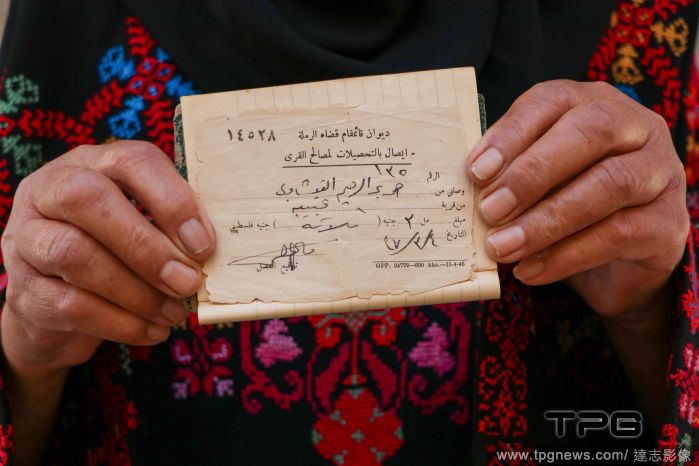 ديوان قائمقام قضاء الرملة ١٤٥٢٨
إيصال بالتحصيلات لمصالح القرى
الرقم ١٣٥
وصلني من
من قرية قبيبة
مبلغ مل ٣ جنيه ( ثلاثة ) جنيه فلسطيني
التاريخ
توقيع المحصل
GPP. 24772-600 Bks.-15-4-46
TPG
www.tpgnews.com/ 達志影像